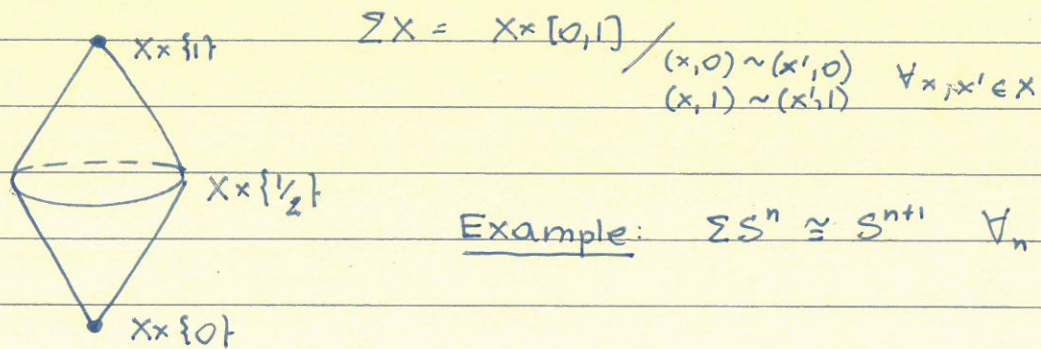 X×{1}
ΣX = X×[0,1] / (x,0) ~ (x',0)
(x,1) ~ (x',1) ∀x,x' ∈ X
X×{1/2}
Example: ΣSⁿ ≅ Sⁿ⁺¹ ∀n
X×{0}